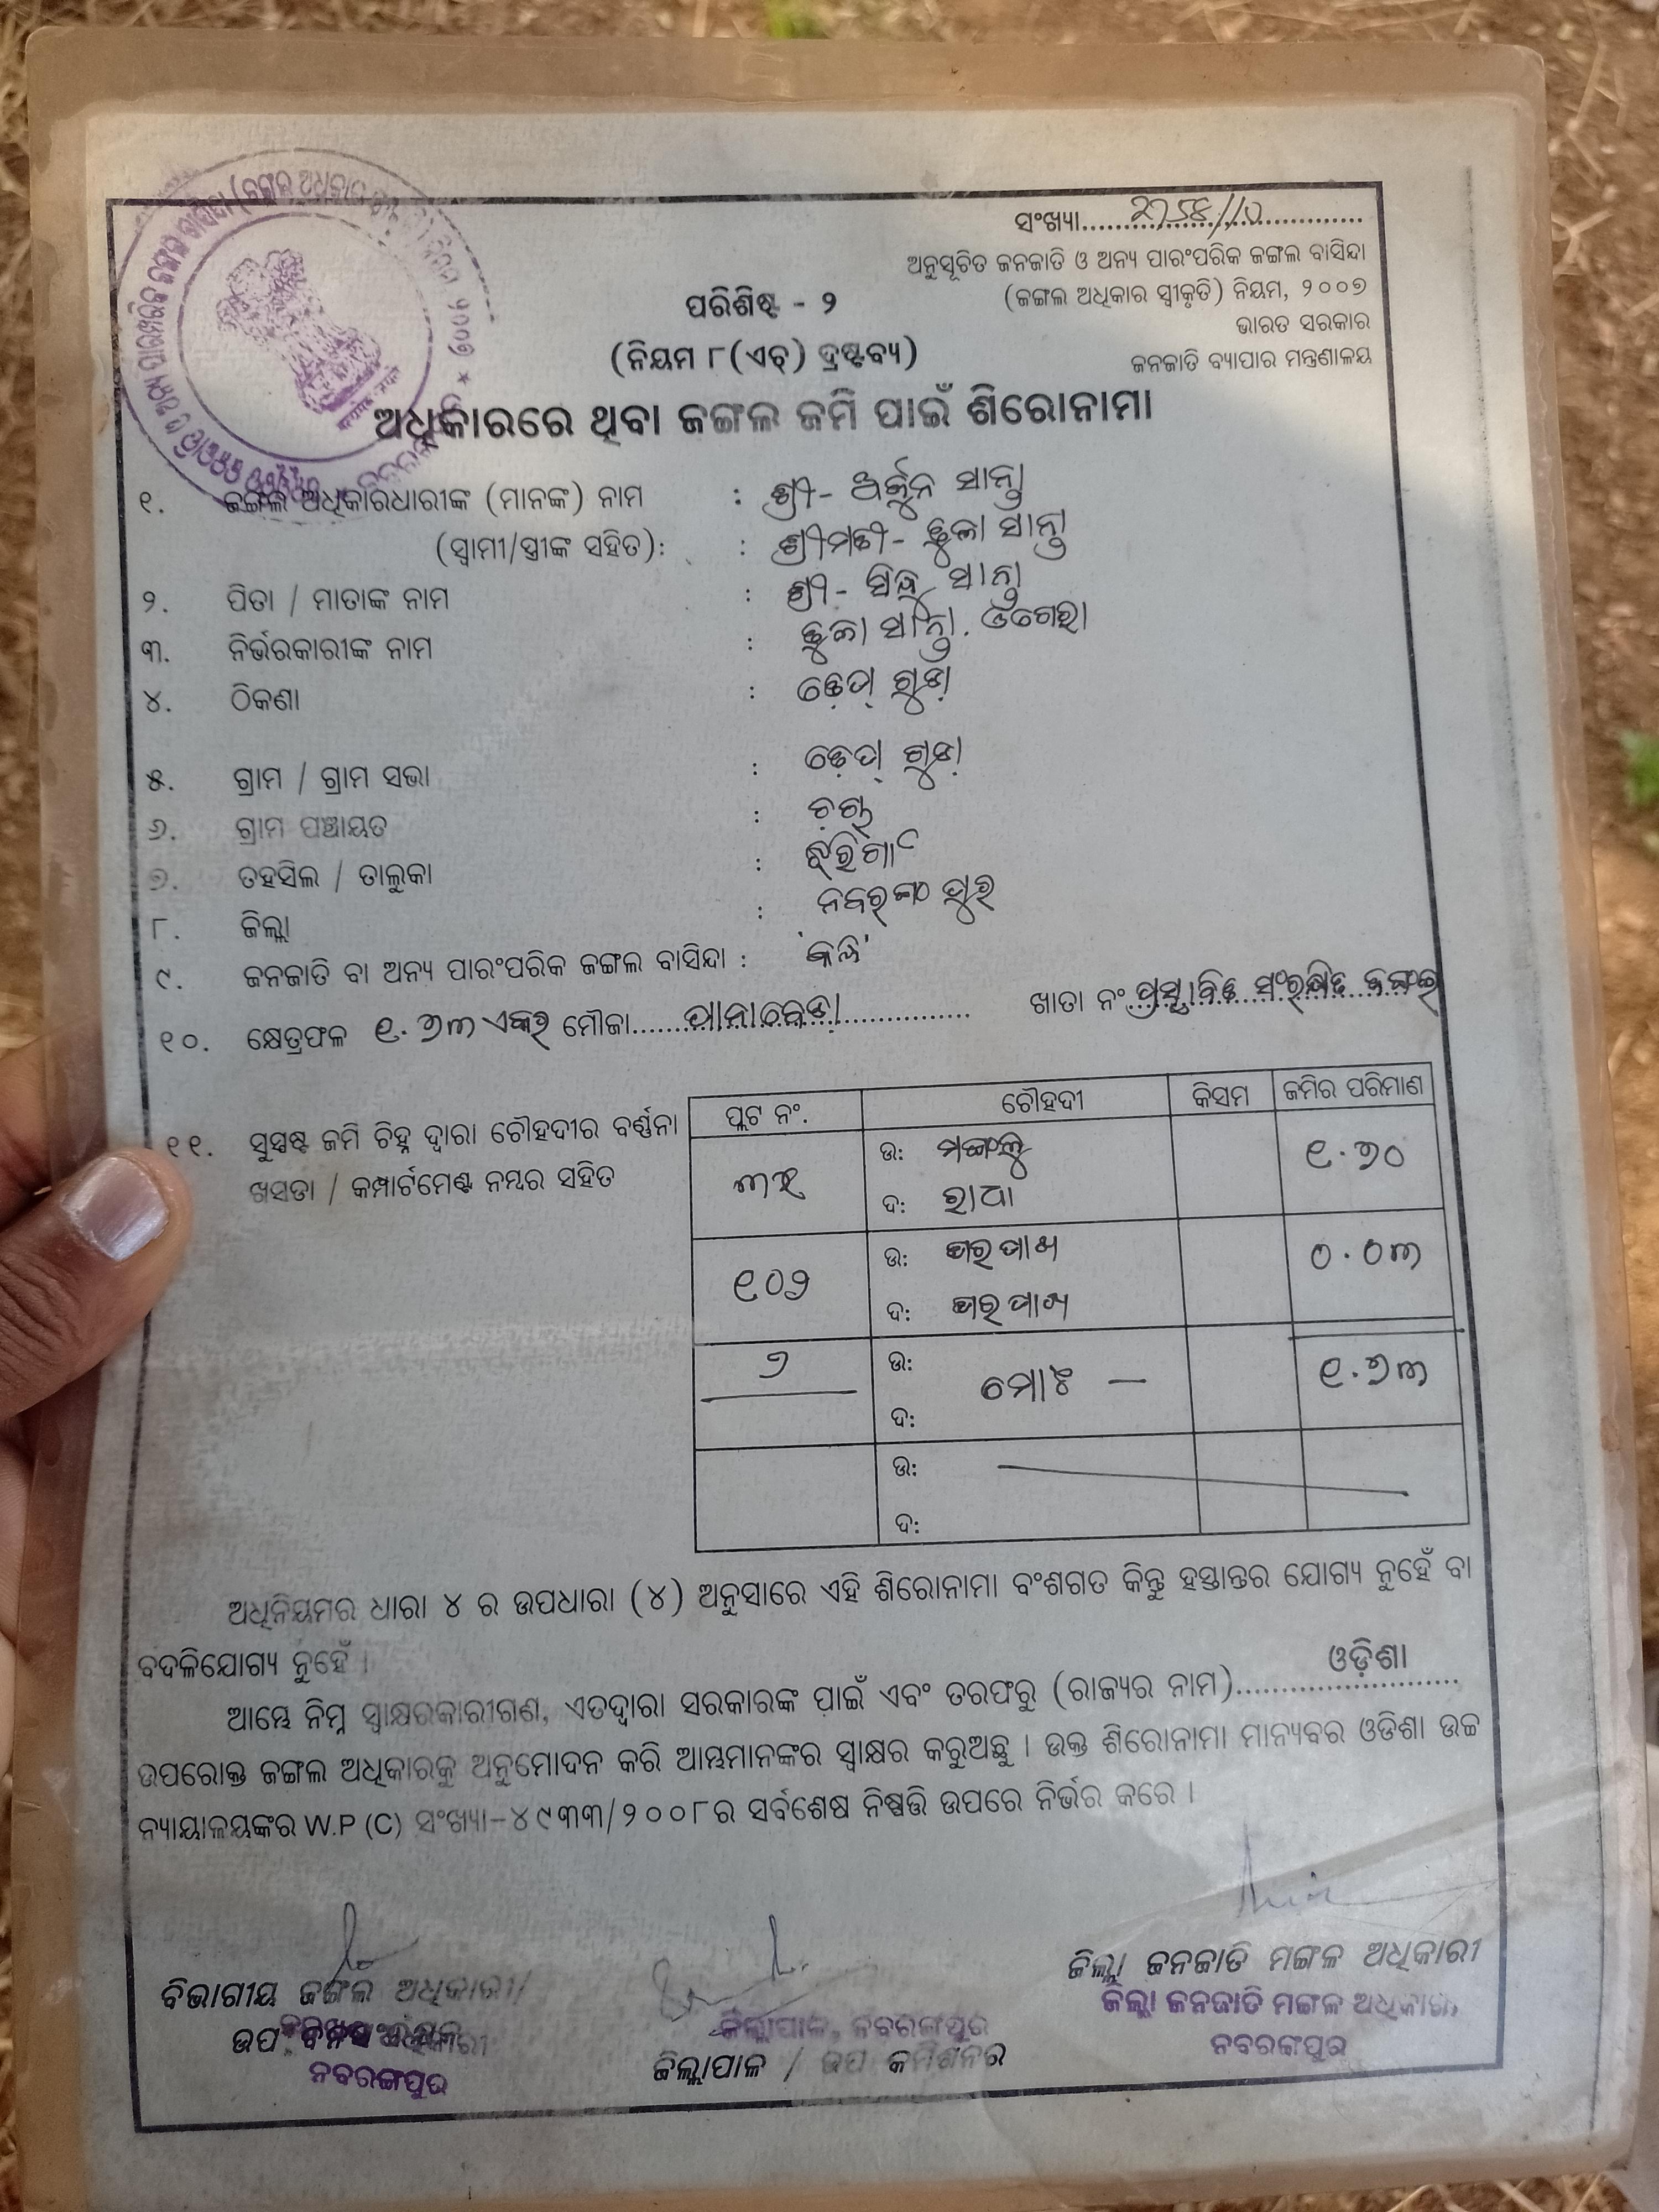 ସଂଖ୍ୟା
ଅନୁସୂଚିତ ଜନଜାତି ଓ ଅନ୍ୟ ପାରଂପରିକ ଜଙ୍ଗଲ ବାସିନ୍ଦା
(ଜଙ୍ଗଲ ଅଧିକାର ସ୍ୱୀକୃତି) ନିୟମ, ୨୦୦୭
ଭାରତ ସରକାର
ଜନଜାତି ବ୍ୟାପାର ମନ୍ତ୍ରଣାଳୟ
ପରିଶିଷ୍ଟ - ୨
(ନିୟମ ୮(ଏଚ୍) ଦ୍ରଷ୍ଟବ୍ୟ)
ଅଧିକାରରେ ଥିବା ଜଙ୍ଗଲ ଜମି ପାଇଁ ଶିରୋନାମା
୧. ଜଙ୍ଗଲ ଅଧିକାରଧାରୀଙ୍କ (ମାନଙ୍କ) ନାମ : ଶ୍ରୀ- ଅର୍ଜୁନ ସାନ୍ତା
(ସ୍ୱାମୀ/ସ୍ତ୍ରୀଙ୍କ ସହିତ): : ଶ୍ରୀମତୀ- ଝୁଲା ସାନ୍ତା
୨. ପିତା / ମାତାଙ୍କ ନାମ : ଶ୍ରୀ- ସାନ୍ତା
୩. ନିର୍ଭରକାରୀଙ୍କ ନାମ : ଝୁଲା ସାନ୍ତା. ଓଗେରା
୪. ଠିକଣା :
୫. ଗ୍ରାମ / ଗ୍ରାମ ସଭା :
୬. ଗ୍ରାମ ପଞ୍ଚାୟତ :
୭. ତହସିଲ / ତାଲୁକା : ଝରିଗାଁ
୮. ଜିଲ୍ଲା : ନବରଙ୍ଗପୁର
୯. ଜନଜାତି ବା ଅନ୍ୟ ପାରଂପରିକ ଜଙ୍ଗଲ ବାସିନ୍ଦା :
୧୦. କ୍ଷେତ୍ରଫଳ ୧.୬୩ ଏକର ମୌଜା ପାନାବେଡ଼ା ଖାତା ନଂ ପ୍ରସ୍ତାବିତ ସଂରକ୍ଷିତ ଜଙ୍ଗଲ
ପ୍ଲଟ ନଂ. ଚୌହଦୀ କିସମ ଜମିର ପରିମାଣ
୧୧. ସୁସ୍ପଷ୍ଟ ଜମି ଚିହ୍ନ ଦ୍ୱାରା ଚୌହଦୀର ବର୍ଣ୍ଣନା
ଖସଡା / କମ୍ପାର୍ଟମେଣ୍ଟ ନମ୍ବର ସହିତ
ଉ: ମଙ୍ଗଳୁ ୧.୬୦
ଦ: ରାଧା
୧୦୨ ଉ: ଘରପାଖ ୦.୦୩
ଦ: ଘରପାଖ
୨ ଉ: ମୋଃ — ୧.୬୩
ଦ:
ଉ:
ଦ:
ଅଧିନିୟମର ଧାରା ୪ ର ଉପଧାରା (୪) ଅନୁସାରେ ଏହି ଶିରୋନାମା ବଂଶଗତ କିନ୍ତୁ ହସ୍ତାନ୍ତର ଯୋଗ୍ୟ ନୁହେଁ ବା
ବଦଳିଯୋଗ୍ୟ ନୁହେଁ ।
ଆମ୍ଭେ ନିମ୍ନ ସ୍ୱାକ୍ଷରକାରୀଗଣ, ଏତଦ୍ୱାରା ସରକାରଙ୍କ ପାଇଁ ଏବଂ ତରଫରୁ (ରାଜ୍ୟର ନାମ) ଓଡ଼ିଶା
ଉପରୋକ୍ତ ଜଙ୍ଗଲ ଅଧିକାରକୁ ଅନୁମୋଦନ କରି ଆମ୍ଭମାନଙ୍କର ସ୍ୱାକ୍ଷର କରୁଅଛୁ । ଉକ୍ତ ଶିରୋନାମା ମାନ୍ୟବର ଓଡିଶା ଉଚ୍ଚ
ନ୍ୟାୟାଳୟଙ୍କର W.P (C) ସଂଖ୍ୟା-୪୯୩୩/୨୦୦୮ର ସର୍ବଶେଷ ନିଷ୍ପତ୍ତି ଉପରେ ନିର୍ଭର କରେ ।
ବିଭାଗୀୟ ଜଙ୍ଗଲ ଅଧିକାରୀ/
ଉପ
ନବରଙ୍ଗପୁର
ଜିଲ୍ଲାପାଳ, ନବରଙ୍ଗପୁର
ଜିଲ୍ଲାପାଳ / ଉପ କମିଶନର
ଜିଲ୍ଲା ଜନଜାତି ମଙ୍ଗଳ ଅଧିକାରୀ
ଜିଲ୍ଲା ଜନଜାତି ମଙ୍ଗଳ ଅଧିକାରୀ
ନବରଙ୍ଗପୁର